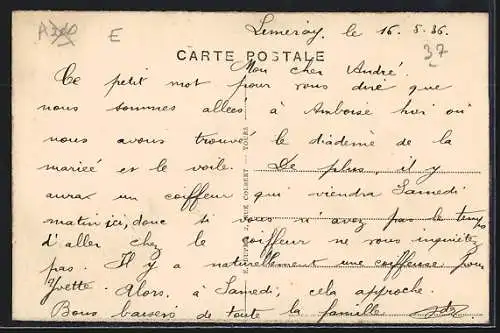 A340 E
Limeray, le 16.5.36.
37
CARTE POSTALE
Mon cher André.
Ce petit mot pour vous dire que
nous sommes allées à Amboise hier où
nous avons trouvé le diadème de la
mariée et le voile. De plus, il y
aura un coiffeur qui viendra Samedi
matin ici, donc si vous n'avez pas le temps
d'aller chez le coiffeur ne vous inquiétez
pas. Il y a naturellement une coiffeuse pour
Yvette. Alors, à Samedi, cela approche.
Bons baisers de toute la famille.
RUE COLBERT — TOURS